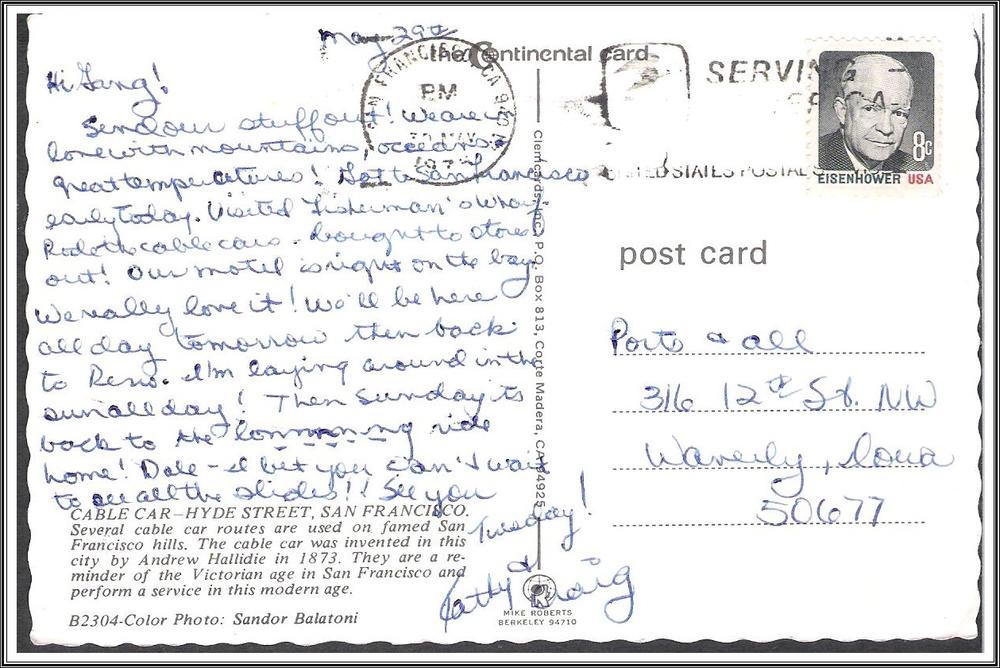 May 29th
the Continental card
Hi Gang!
Send our stuff out! We are in
love with mountains, oceans &
great temperatures! Got to San Francisco
early today. Visited Fisherman's Wharf
Rode the cable cars - bought to stores
out! Our motel is right on the bay
We really love it! We'll be here
all day tomorrow then back
to Reno. I'm laying around in the
sun all day! Then Sunday its
back to the lonnnnng ride
home! Dale - I bet you can't wait
to see all the slides!! See you
Tuesday!
Kathy & Craig
CABLE CAR—HYDE STREET, SAN FRANCISCO.
Several cable car routes are used on famed San
Francisco hills. The cable car was invented in this
city by Andrew Hallidie in 1873. They are a re-
minder of the Victorian age in San Francisco and
perform a service in this modern age.
B2304-Color Photo: Sandor Balatoni
Clemcards, Inc., P.O. Box 813, Corte Madera, CA 94925
MIKE ROBERTS
BERKELEY 94710
SAN FRANCISCO CA 940
PM
30 MAY
197
SERVING
UNITED STATES POSTAL
8c
EISENHOWER USA
post card
Ports & all
316 12th St. NW
Waverly, Iowa
50677